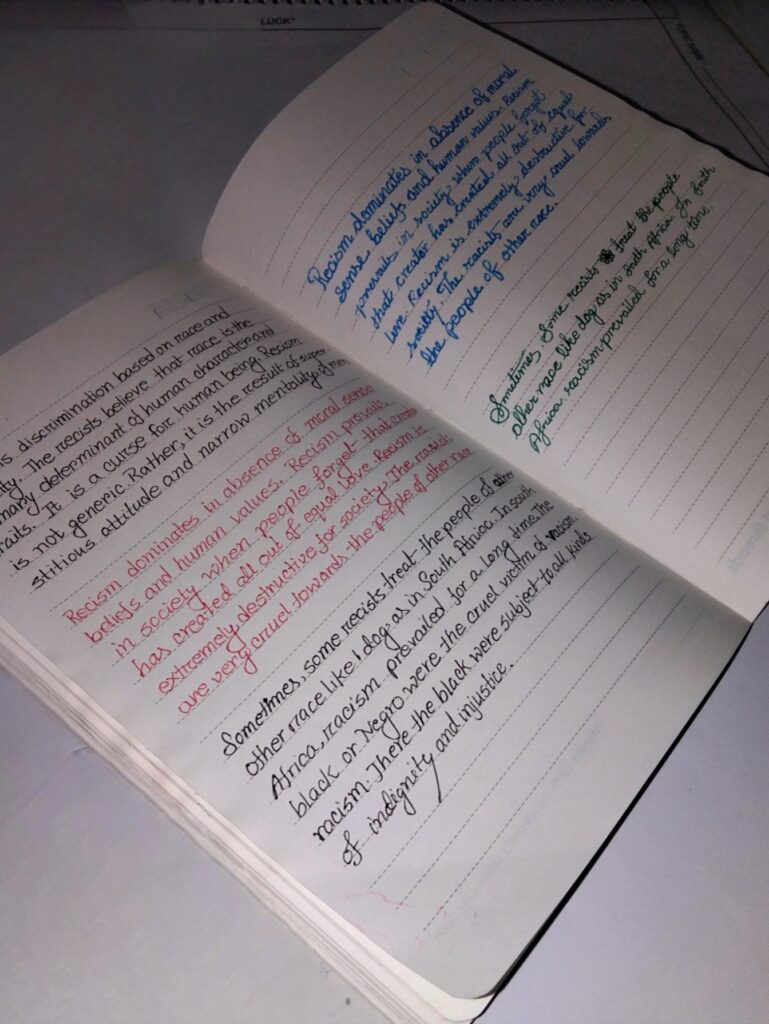 LUCK
TOPIC NAME
is discrimination based on race and
ty. The recists believe that race is the
mary determinant of human character and
raits. It is a curse for human being. Recism
is not generic. Rather, it is the result of super-
stitious attitude and narrow mentality of men
Recism dominates in absence of moral sense
beliefs and human values. Recism prevails
in society when people forget that creator
has created all out of equal love. Recism is
extremely destructive for society. The racists
are very cruel towards the people of other race
Sometimes, some recists treat the people of other
other race like dog as in South Africa. In south
Africa, racism prevailed for a long time. The
black or Negro were the cruel victim of racism.
racism. There the black were subject to all kinds
of indignity and injustice.
Recism dominates in absence of moral
sense, beliefs and human values. Recism
prevails in society when people forget
that creator has created all out of equal
love. Recism is extremely destructive for
society. The racists are very cruel towards
the people of other race.
Sometimes, Some recists treat the people
other race like dog as in South Africa. In South
Africa racism prevailed for a long time.